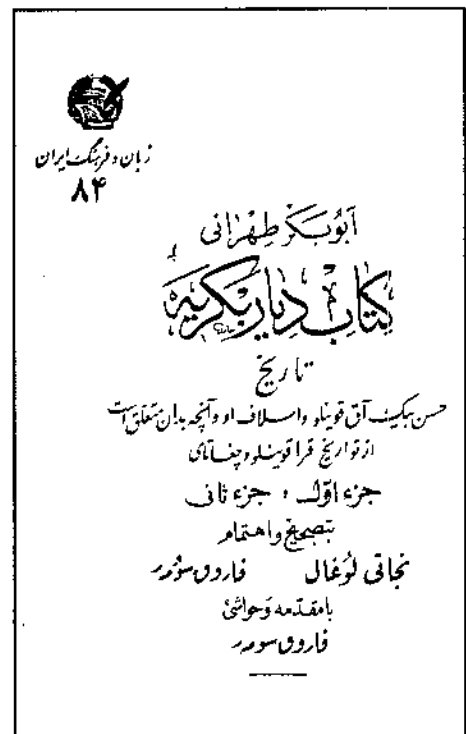 زبان و فرهنگ ایران
۸۴
ابوبکر طهرانی
کتاب دیار بکریه
تاریخ
حسن بیک آق قوینلو و اسلاف او و آنچه بدان متعلق است
از تواریخ قرا قوینلو و چغاتای
جزء اوّل ، جزء ثانی
بتصحیح و اهتمام
نجاتی لوغال فاروق سومر
با مقدّمه و حواشی
فاروق سومر